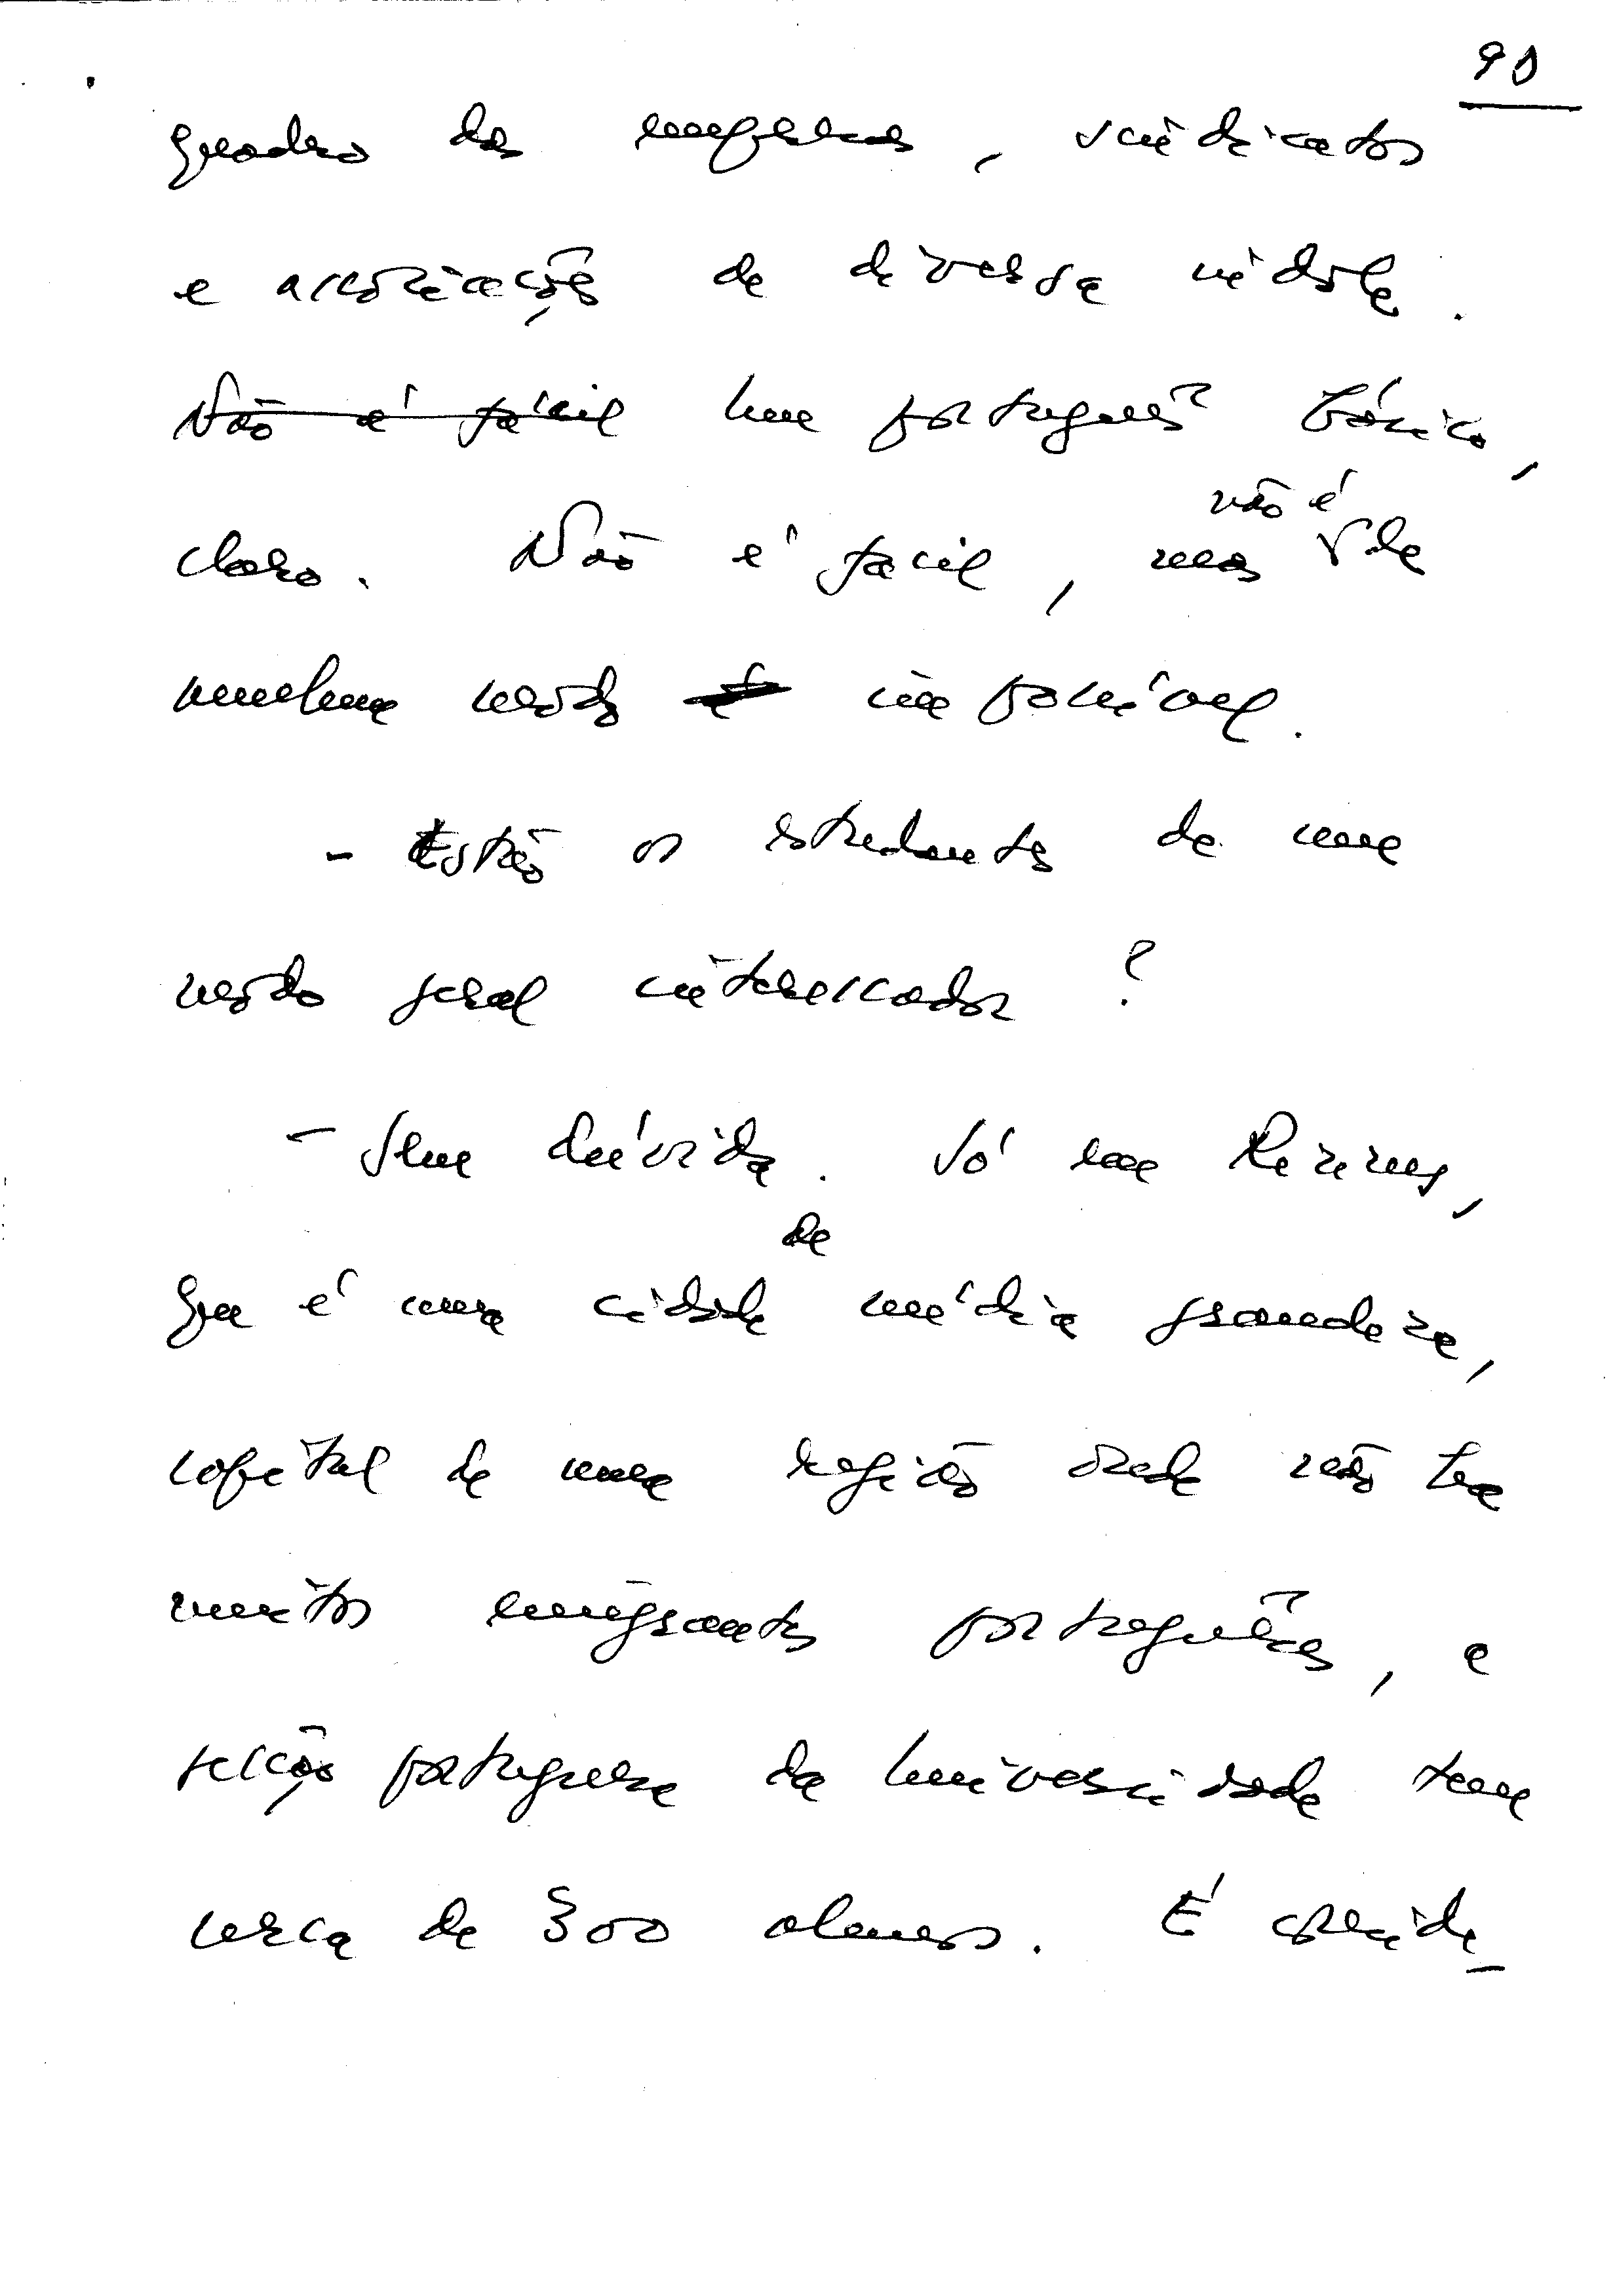 90
quadro das empresas, sindicatos
e associações de diversa índole.
Não é fácil Um português básico,
claro. Não é fácil, mas não é de
nenhum modo impossível.
- Estão os estudantes de um
modo geral interessados?
- Sem dúvida. Só em Rennes,
que é uma cidade de média grandeza,
capital de uma região onde não há
muitos emigrantes portugueses, a
secção portuguesa da Universidade tem
cerca de 300 alunos. É conside_